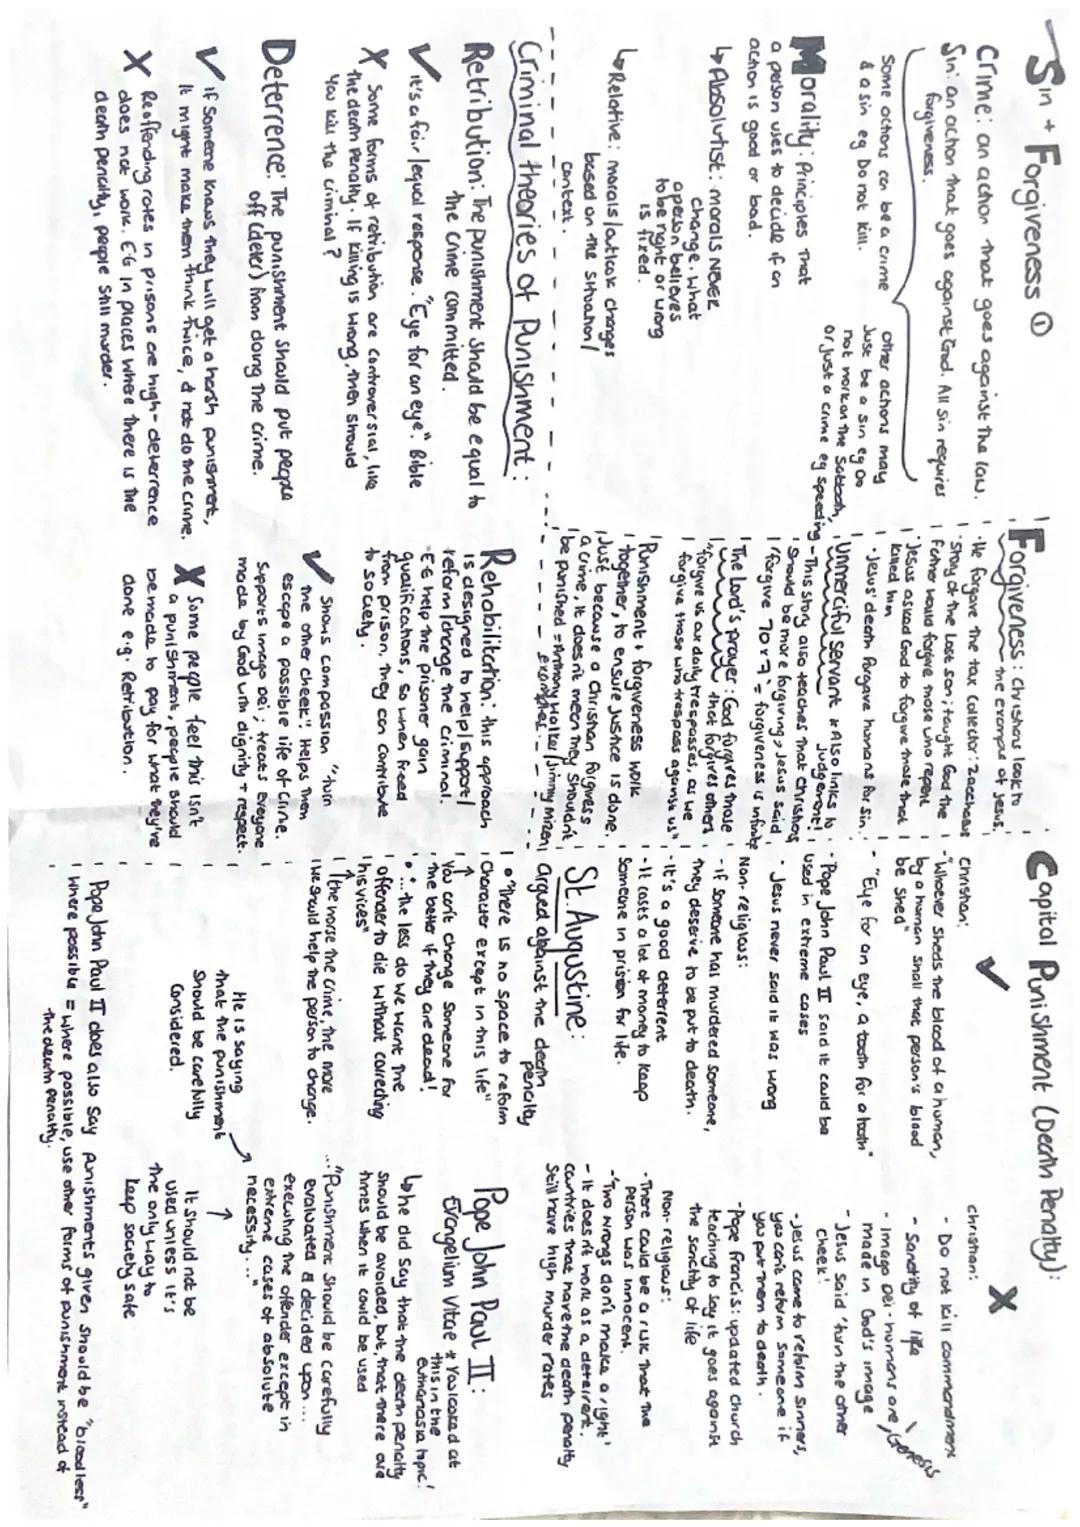 Sin + Forgiveness ①
Crime: an action that goes against the law.
Sin: an action that goes against God. All sin requires
forgiveness.
Some actions can be a crime
& a sin eg Do not kill.
Other actions may
Just be a sin eg Do
not work on the Sabbath,
or just a crime eg speeding
Morality: Principles that
a person uses to decide if an
action is good or bad.
↳ Absolutist: morals NEVER
change. What
a person believes
to be right or wrong
is fixed.
↳ Relative: morals/outlook changes
based on the situation/
context.
Criminal theories of Punishment:
Retribution: The punishment should be equal to
the crime committed.
✓ it's a fair/equal response. "Eye for an eye". Bible
X Some forms of retribution are controversial, like
the death penalty. If killing is wrong, then should
you kill the criminal?
Deterrence: The punishment should put people
off (deter) from doing the crime.
✓ if someone knows they will get a harsh punishment,
it might make them think twice, & not do the crime.
X Reoffending rates in prisons are high - deterrence
does not work. E.G in places where there is the
death penalty, people still murder.
Forgiveness: Christians look to
the example of Jesus,
· He forgave the tax collector: Zacchaeus
· Story of the lost son; taught God the
Father would forgive those who repent
· Jesus asked God to forgive those that
killed him
· Jesus' death forgave humans for sin.
Unmerciful servant * Also links to
Judgement!
- This story also teaches that christians
should be more forgiving, Jesus said
forgive 70x7 = forgiveness is infinite
The Lord's prayer: God forgives those
that forgives others
"forgive us our daily trespasses, as we
forgive those who trespass against us"
Punishment + forgiveness work
together, to ensure justice is done.
Just because a Christian forgives
a crime, it doesn't mean they shouldn't
be punished = Anthony Walker/Jimmy Mizen
examples.
Rehabilitation: this approach
is designed to help/support/
reform/change the criminal.
- E.G help the prisoner gain
qualifications, so when freed
from prison, they can contribute
to society.
✓ Shows compassion "turn
the other cheek". Helps them
escape a possible life of crime.
Supports imago Dei; treats everyone
made by God with dignity + respect.
X Some people feel this isn't
a punishment, people should
be made to pay for what they're
done e.g. Retribution.
Capital Punishment (Death Penalty):
✓
Christian:
- "Whoever sheds the blood of a human,
by a human shall that person's blood
be shed"
- "Eye for an eye, a tooth for a tooth"
- Pope John Paul II said it could be
used in extreme cases
- Jesus never said it was wrong
Non-religious:
- if someone has murdered someone,
they deserve to be put to death.
- It's a good deterrent
- It costs a lot of money to keep
someone in prison for life.
X
Christian:
- Do not kill commandment
- Sanctity of life
- Imago Dei - humans are
made in God's image
Genesis
- Jesus said 'turn the other
cheek'.
- Jesus came to reform sinners,
you can't reform someone if
you put them to death.
- Pope Francis: updated church
teaching to say it goes against
the sanctity of life
Non-religious:
- There could be a risk that the
person was innocent.
- 'Two wrongs don't make a right'
- It doesn't work as a deterrent,
countries that have the death penalty
still have high murder rates
St. Augustine:
argued against the death
penalty
• "There is no space to reform
character except in this life"
↑
You can't change someone for
the better if they are dead!
• "... the less do we want the
offender to die without correcting
his vices"
↑
(the worse the crime, the more
we should help the person to change.
Pope John Paul II:
Evangelium Vitae * You looked at
this in the
euthanasia topic!
↳ he did say that the death penalty
should be avoided, but, that there are
times when it could be used
..."Punishment should be carefully
evaluated & decided upon ...
executing the offender except in
extreme cases of absolute
necessity..."
He is saying
that the punishment
should be carefully
considered.
It should not be
used unless it's
the only way to
keep society safe
Pope John Paul II does also say punishments given should be "bloodless"
where possible = where possible, use other forms of punishment instead of
the death penalty.